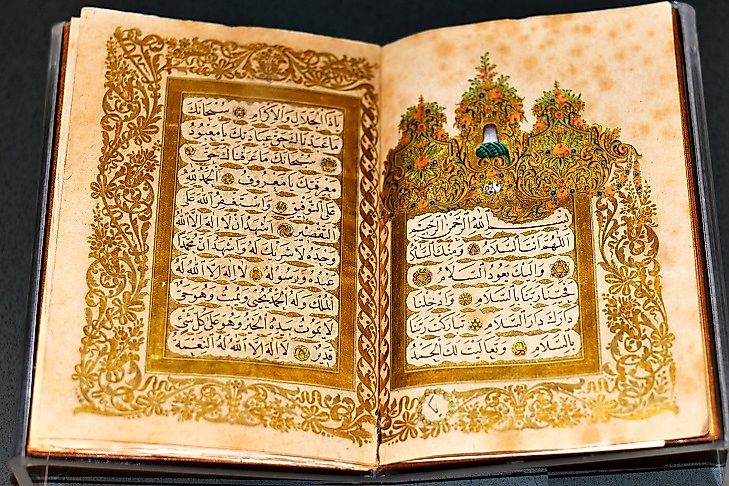 بسم الله الرحمن الرحيم
اللهم انت السلام ومنك السلام
واليك يعود السلام
فحينا ربنا بالسلام وادخلنا
دارك دار السلام تباركت ربنا
بالسلام وتعاليت لك الحمد
ياذا الجلال والاكرام سبحانك
ما عبدناك حق عبادتك يا معبود
سبحانك ما عرفناك حق
معرفتك يا معروف الحمد لله
على التوفيق واستغفر الله على
التقصير اشهد ان لا اله الا الله
وحده لا شريك له واشهد ان محمدا
عبده ورسوله لا اله الا الله له
الملك وله الحمد يحيي ويميت وهو حي
لا يموت بيده الخير وهو على كل شيء
قدير لا اله الا الله له النعمة